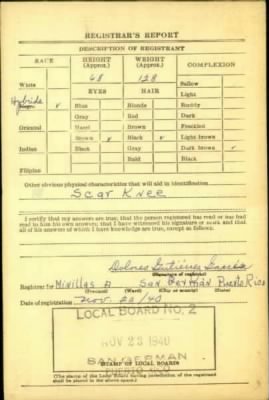 REGISTRAR'S REPORT
DESCRIPTION OF REGISTRANT
RACE HEIGHT (Approx.) WEIGHT (Approx.) COMPLEXION
68 128
White Sallow
EYES HAIR Light
Hybrids
Negro ✓ Blue Blonde Ruddy
Gray Red Dark
Oriental Hazel Brown Freckled
Brown ✓ Black ✓ Light brown
Indian Black Gray Dark brown ✓
Bald Black
Filipino
Other obvious physical characteristics that will aid in identification
Scar Knee
I certify that my answers are true; that the person registered has read or has had
read to him his own answers; that I have witnessed his signature or mark and that
all of his answers of which I have knowledge are true, except as follows:
Dolores Gutiérrez
(Signature of registrar)
Registrar for Minillas A San Germán Puerto Rico
(Precinct) (Ward) (City or county) (State)
Date of registration Nov. 20/40
LOCAL BOARD NO. 2
NOV 23 1940
SAN GERMAN
PUERTO RICO
(STAMP OF LOCAL BOARD)
(The stamp of the Local Board having jurisdiction of the registrant
shall be placed in the above space.)